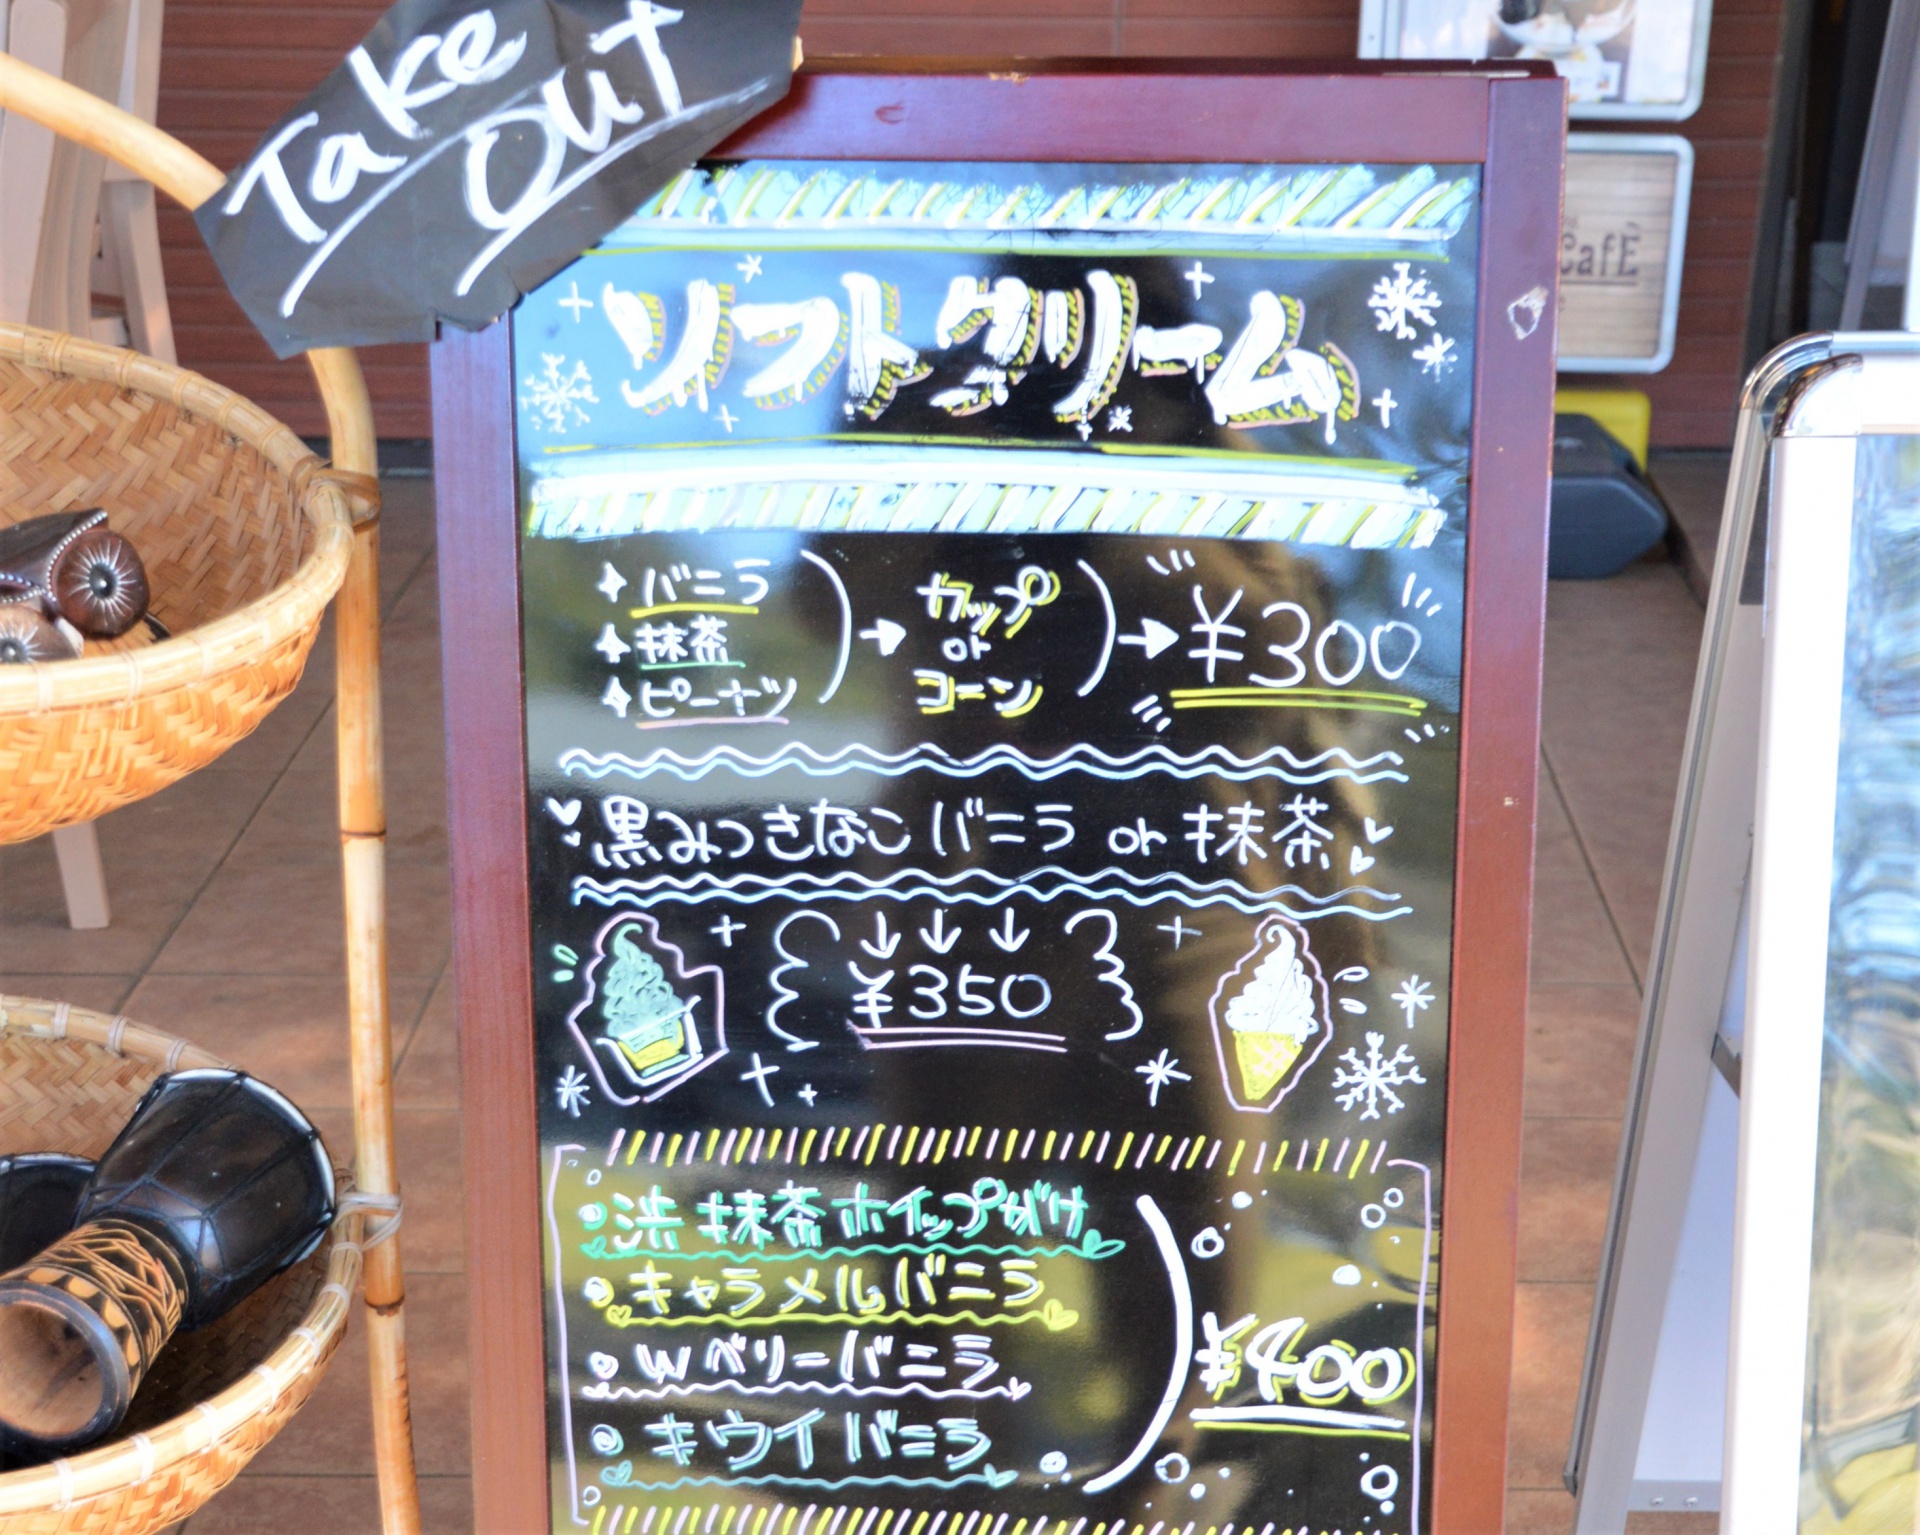 Take
Out
CafE
ソフトクリーム
バニラ
抹茶
ピーナツ
カップ
or
コーン
¥300
黒みつきなこバニラ or 抹茶
¥350
渋抹茶ホイップがけ
キャラメルバニラ
Wベリーバニラ
キウイバニラ
¥400